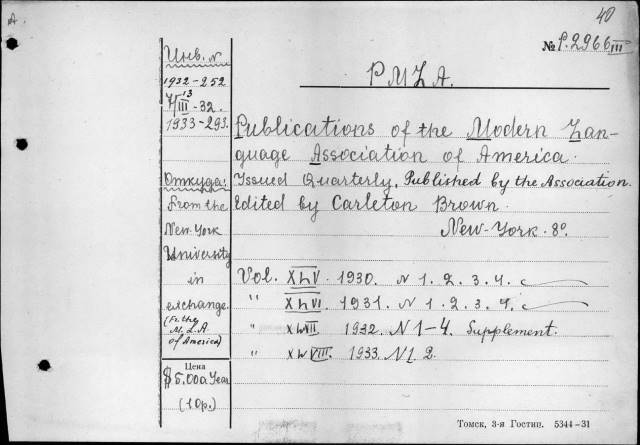 A
40
№ P.2966 III
P M L A.
Инв. №
1932-252
7/III-32.
13
1933-293.
Publications of the Modern Lan-
guage Association of America.
Откуда:
Issued Quarterly, Published by the Association.
From the
Edited by Carleton Brown.
New-York
New-York. 8º.
University
in
exchange.
(Fr. the
M. L. A
of America)
Vol. XLV. 1930. N 1. 2. 3. 4.
" XLVI 1931. N 1. 2. 3. 4.
" XLVII. 1932. N 1-4. Supplement.
" XLVIII. 1933. N 1. 2.
Цена
$5.00 a Year
(10р.)
Томск, 3-я Гостип. 5344-31